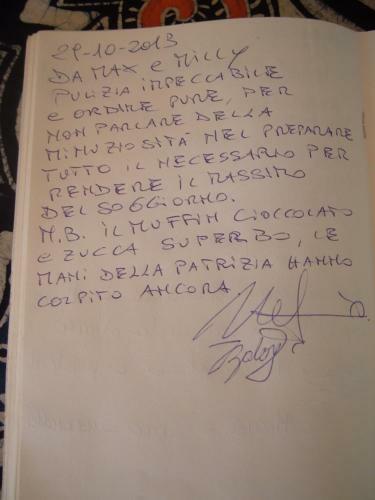 29-10-2013
DA MAX e MILLY
PULIZIA IMPECCABILE
E ORDINE PURE, PER
NON PARLARE DELLA
MINUZIOSITÀ NEL PREPARARE
TUTTO IL NECESSARIO PER
RENDERE IL MASSIMO
DEL SOGGIORNO.
N.B. IL MUFFIN CIOCCOLATO
E ZUCCA SUPERBO, LE
MANI DELLA PATRIZIA HANNO
COLPITO ANCORA